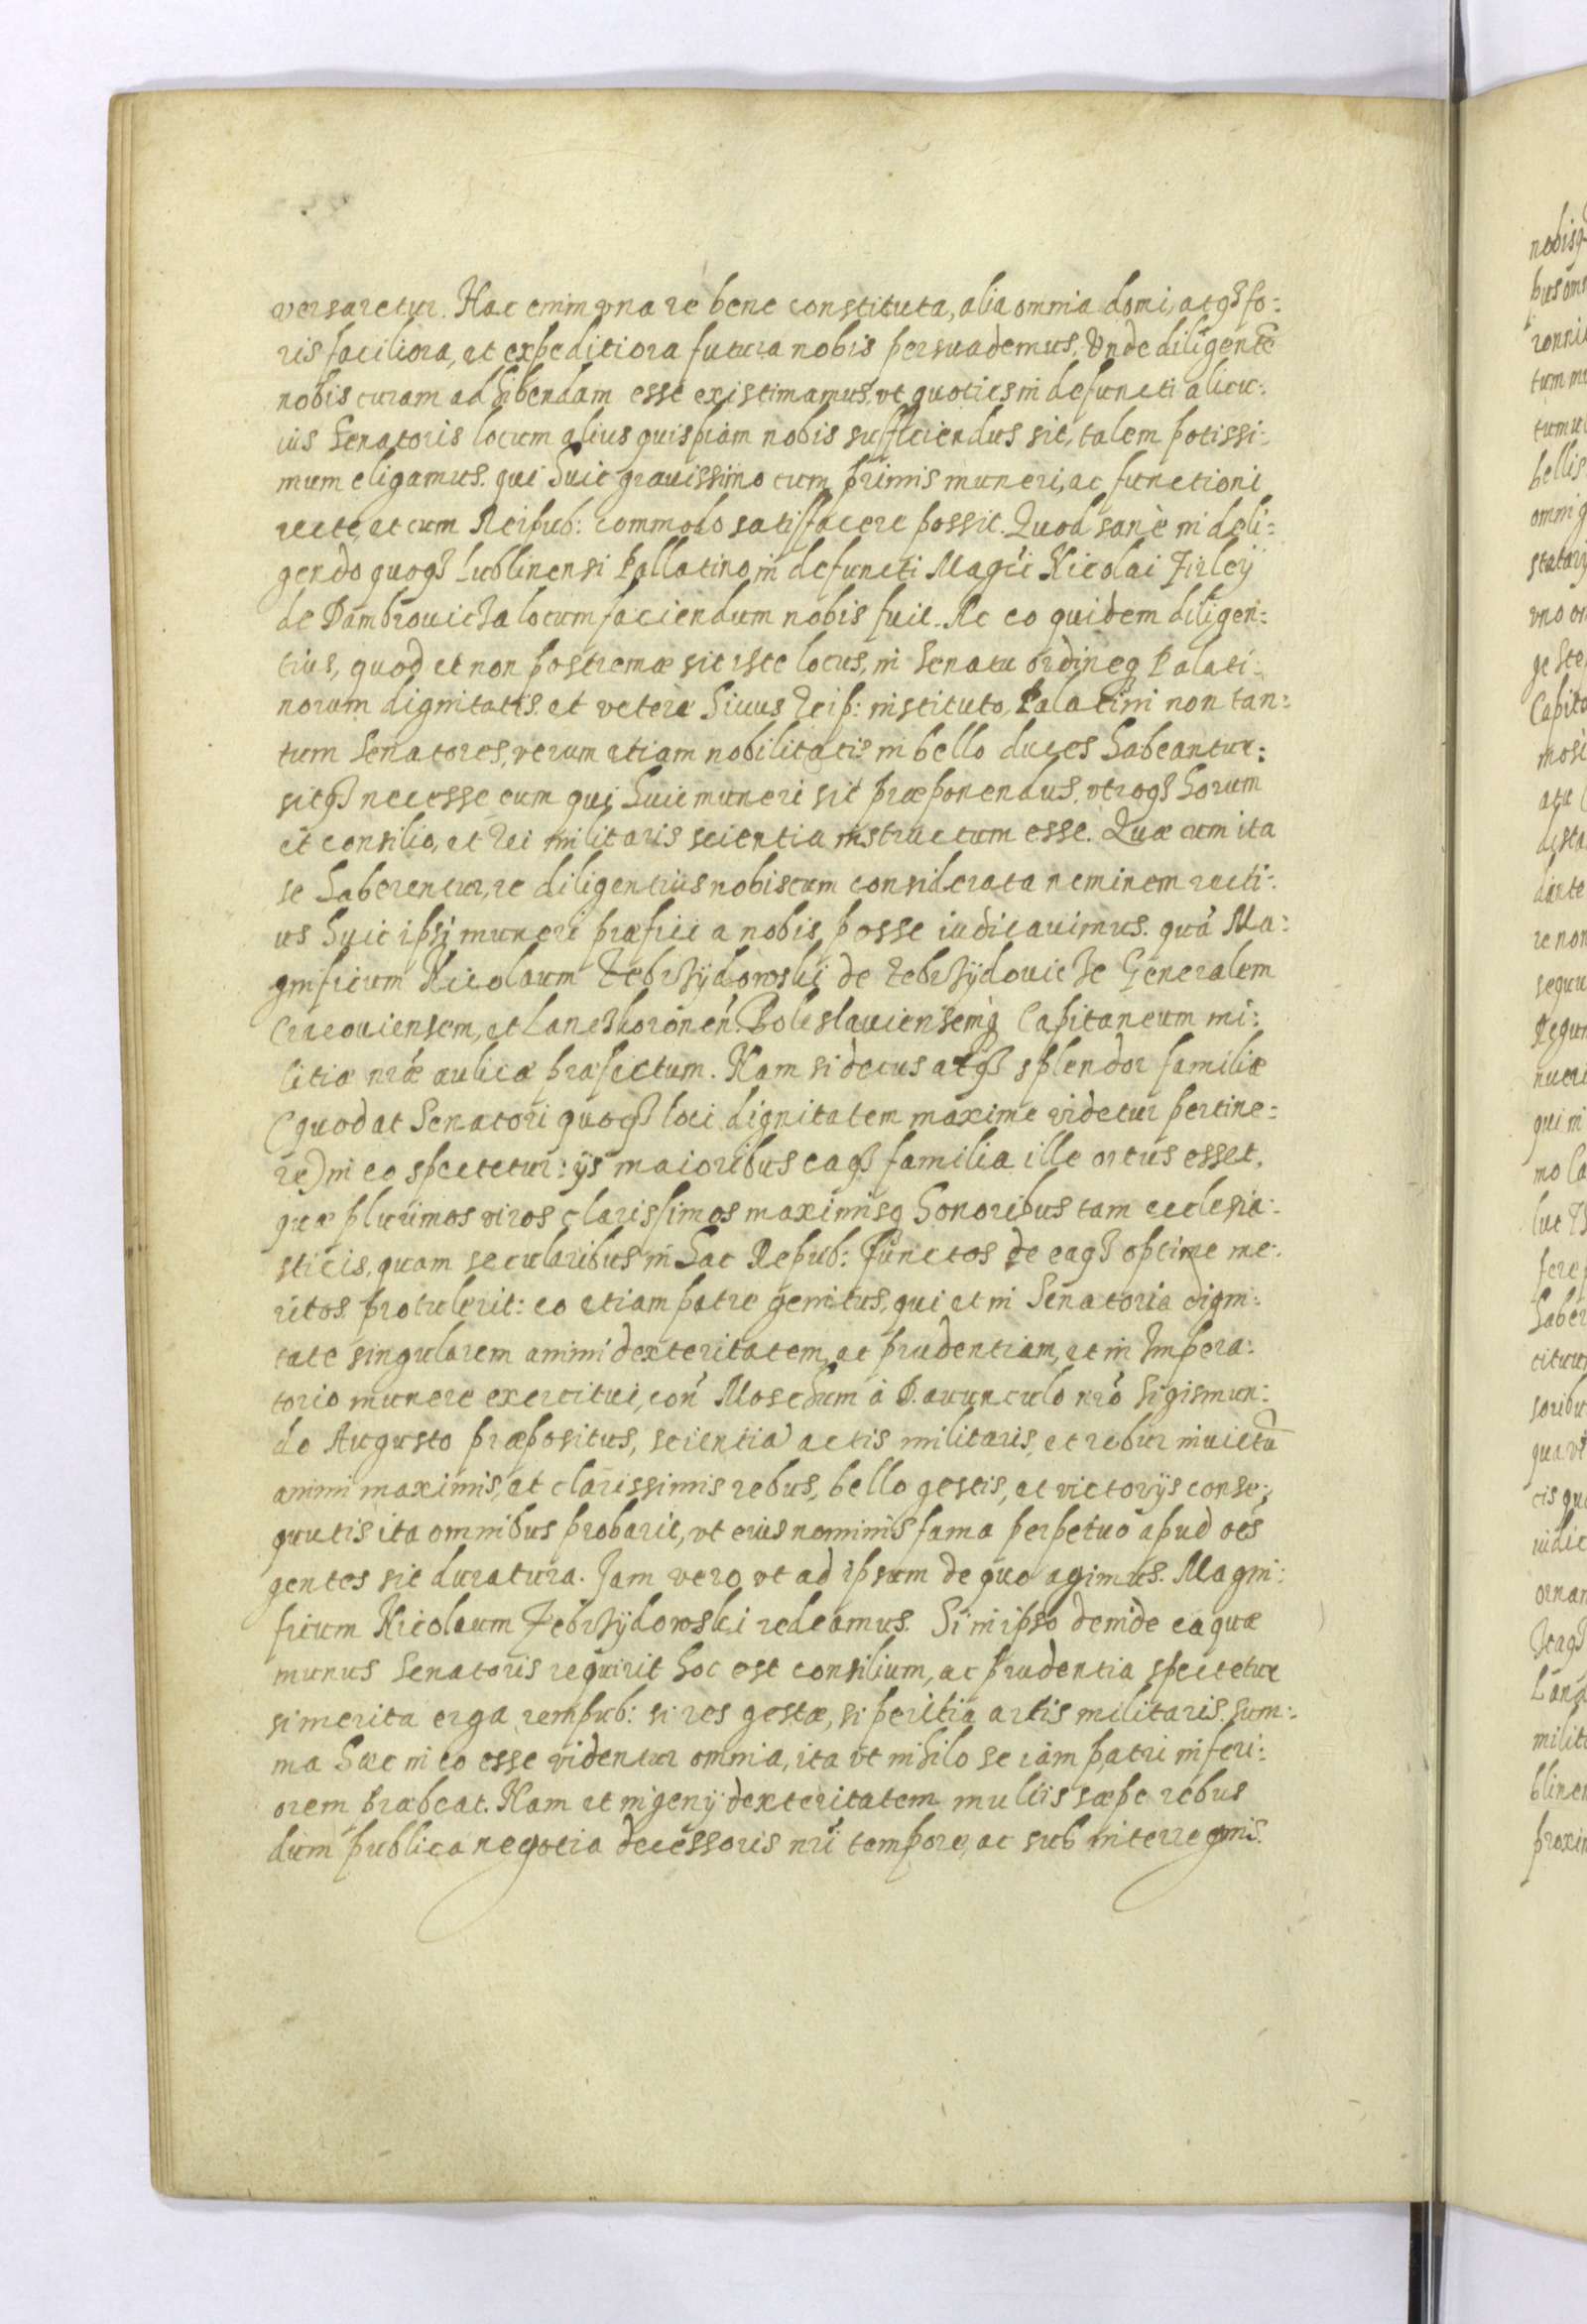 versaretur. Hac enim vna re bene constituta, alia omnia domi, atq3 fo:
ris faciliora, et expeditiora futura nobis persuademus. Vnde diligentē
nobis curam adhibendam esse existimamus, vt quoties in defuncti alicu:
ius Senatoris locum alius quispiam nobis sufficiendus sit, talem potissi:
mum eligamus. qui huic grauissimo cum primis muneri, ac functioni
recte, et cum Reipub: commodo satisfacere possit. Quod sanè in deli:
gendo quoq3 Lublinensi Pallatino in defuncti Magci Nicolai Firleÿ
de Dambrouicza locum faciendum nobis fuit. Ac eo quidem diligen:
tius, quod et non postremæ sit iste locus, in Senatu ordineq Palati:
norum dignitatis. et vetere huius Reip: instituto, Palatini non tan:
tum Senatores, verum etiam nobilitatis in bello duces habeantur:
sitq3 necesse eum qui huic muneri sit præponendus, vtroq3 horum
et consilio, et rei militaris scientia instructum esse. Quæ cum ita
se haberentur, re diligentius nobiscum considerata neminem recti:
us huic ipsi muneri præfici a nobis posse iudicauimus. quā Ma:
gnificum Nicolaum Zebrzÿdowski de Zebrzÿdouicze Generalem
Cracouiensem, et Lanczkoronen̄. Boleslauiensemq Capitaneum mi:
litiæ nrǣ aulicæ præfectum. Nam si decus atq3 splendor familiæ
(quod at Senatori quoq3 loci dignitatem maxime videtur pertine:
re) in eo spectetur: ijs maioribus eaq3 familia ille ortus esset.
quæ plurimos viros clarissimos maximisq honoribus tam ecclesia:
sticis, quam secularibus in hac Repub: functos de eaq3 optime me:
ritos protulerit: eo etiam patre genitus, qui et in Senatoria digni:
tate singularem animi dexteritatem, ac prudentiam, et in Impera:
torio munere exercitui, con̄ Moschum à D. auunculo nrō Sigismun:
do Augusto præpositus, scientia actis militaris, et robur inuictū
animi maximis, et clarissimis rebus, bello gestis, et victorijs conse:
quutis ita omnibus probarit, vt eius nominis fama perpetuo apud oēs
gentes sit duratura. Jam vero vt ad ipsum de quo agimus. Magni:
ficum Nicolaum Zebrzÿdowski redeamus. Si in ipso deinde ea quæ
munus Senatoris requirit hoc est consilium, ac prudentia spectetur
si merita erga rempub: si res gestæ, si peritia artis militaris. sum:
ma hæc in eo esse videntur omnia, ita vt nihilo se iam patri inferi:
orem præbeat. Nam et ingenij dexteritatem multis sæpe rebus
dum publica negotia decessoris nrī tempore, ac sub interregnis.